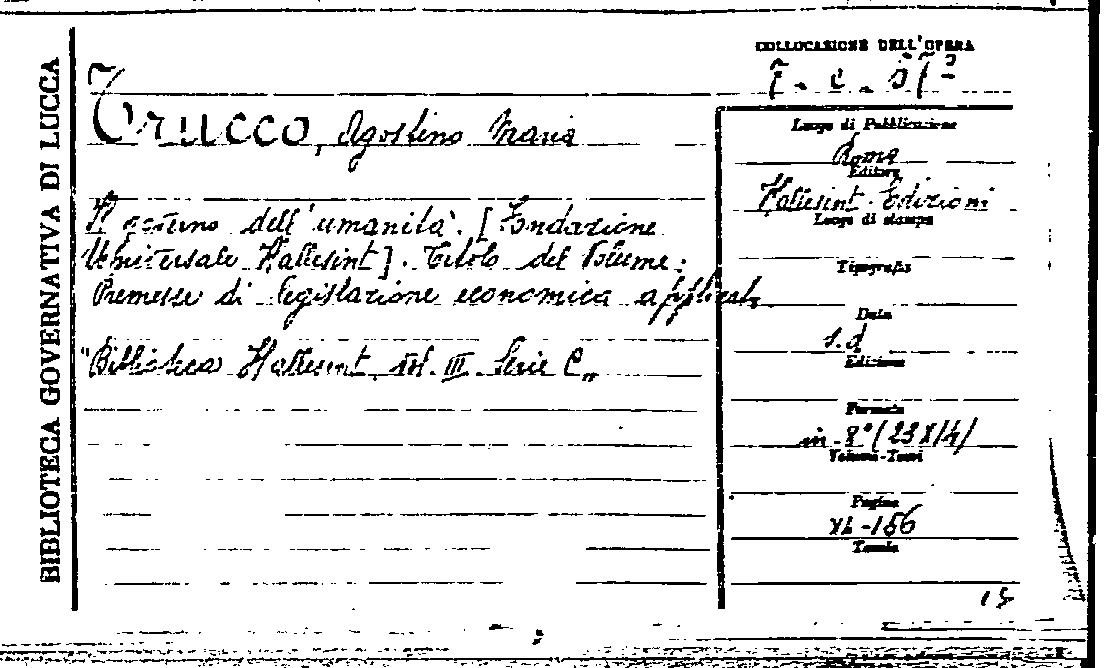 BIBLIOTECA GOVERNATIVA DI LUCCA
COLLOCAZIONE DELL'OPERA
Trucco, Agostino Maria
Il governo dell'umanità. [Fondazione
Universale Hallesint]. Titolo del Volume:
Premesse di legislazione economica applicata
"Biblioteca Hallesint. vol. III. Serie C„
Luogo di Pubblicazione
Roma
Editore
Hallesint Edizioni
Luogo di stampa
Tipografia
Data
s.d
Edizione
Formato
in-8° (23X14)
Volumi-Tomi
Pagine
XL-156
Tavole